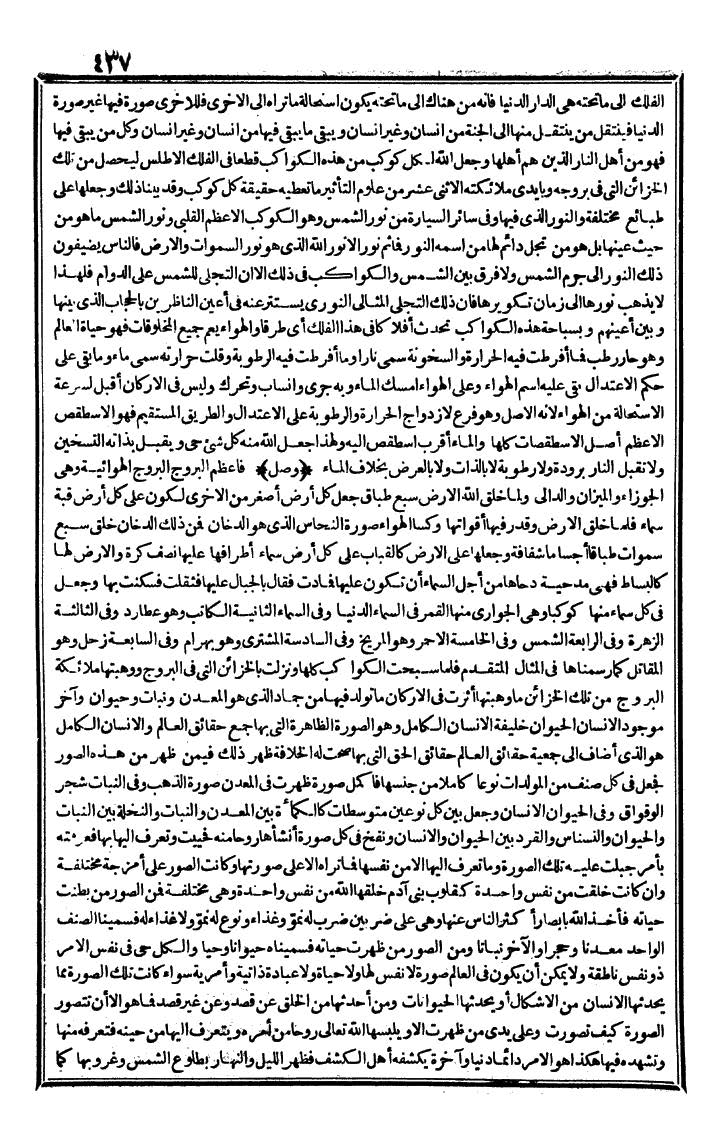 ٤٣٧
الفلك الى ما تحته هى الدار الدنيا فانه من هناك الى ما تحته يكون استحالة ما تراه الى الاخرى فللاخرى صورة فيها غير صورة
الدنيا فينتقل من ينتقل منها الى الجنة من انسان وغير انسان ويبقى ما يبقى فيها من انسان وغير انسان وكل من يبقى فيها
فهو من أهل النار الذين هم أهلها وجعل الله لكل كوكب من هذه الكواكب قطعا فى الفلك الاطلس ليحصل من تلك
الخزائن التى فى بروجه وبايدى ملائكته الاثنى عشر من علوم التأثير ما تعطيه حقيقة كل كوكب وقد بينا ذلك وجعلها على
طبائع مختلفة والنور الذى فيها وفى سائر السيارة من نور الشمس وهو الكوكب الاعظم القلبى ونور الشمس ما هو من
حيث عينها بل هو من تجل دائم لها من اسمه النور فما ثم نور الا نور الله الذى هو نور السموات والارض فالناس يضيفون
ذلك النور الى جرم الشمس ولا فرق بين الشمس والكواكب فى ذلك الا ان التجلى للشمس على الدوام فلهذا
لا يذهب نورها الى زمان تكويرها فان ذلك التجلى المثالى النورى يستتر عنه فى أعين الناظرين بالحجاب الذى بينها
وبين أعينهم وبسباحة هذه الكواكب تحدث أفلاكا فى هذا الفلك أى طرقا والهواء يعم جميع المخلوقات فهو حياة العالم
وهو حار رطب فما أفرطت فيه الحرارة والسخونة سمى نارا وما أفرطت فيه الرطوبة وقلت حرارته سمى ماء وما بقى على
حكم الاعتدال بقى عليه اسم الهواء وعلى الهواء امسك الماء وبه جرى وانساب وتحرك وليس فى الاركان أقبل لسرعة
الاستحالة من الهواء لانه الاصل وهو فرع لازدواج الحرارة والرطوبة على الاعتدال والطريق المستقيم فهو الاسطقص
الاعظم أصل الاسطقصات كلها والماء أقرب اسطقص اليه ولهذا جعل الله منه كل شئ حى ويقبل بذاته التسخين
ولا تقبل النار برودة ولا رطوبة لا بالذات ولا بالعرض بخلاف الماء ﴿وصل﴾ فاعظم البروج البروج الهوائية وهى
الجوزاء والميزان والدالى ولما خلق الله الارض سبع طباق جعل كل أرض أصغر من الاخرى ليكون على كل أرض قبة
سماء فلما خلق الارض وقدر فيها أقواتها وكسا الهواء صورة النحاس الذى هو الدخان فمن ذلك الدخان خلق سبع
سموات طباقا أجساما شفافة وجعلها على الارض كالقباب على كل أرض سماء أطرافها عليها نصف كرة والارض لها
كالبساط فهى مدحية دحاها من أجل السماء أن تكون عليها فادت فقال بالجبال عليها فثقلت فسكنت بها وجعل
فى كل سماء منها كوكبا وهى الجوارى منها القمر فى السماء الدنيا وفى السماء الثانية الكاتب وهو عطارد وفى الثالثة
الزهرة وفى الرابعة الشمس وفى الخامسة الاحر وهو المريخ وفى السادسة المشترى وهو بهرام وفى السابعة زحل وهو
المقاتل كما رسمناها فى المثال المتقدم فلما سبحت الكواكب كلها ونزلت بالخزائن التى فى البروج ووهبتها ملائكة
البروج من تلك الخزائن ما وهبتها أثرت فى الاركان ما تولد فيها من جماد الذى هو المعدن ونبات وحيوان وآخر
موجود الانسان الحيوان خليفة الانسان الكامل وهو الصورة الظاهرة التى بها جمع حقائق العالم والانسان الكامل
هو الذى أضاف الى جمعية حقائق العالم حقائق الحق التى بها صحت له الخلافة ظهر ذلك فيمن ظهر من هذه الصور
فجعل فى كل صنف من المولدات نوعا كاملا من جنسها فاكمل صورة ظهرت فى المعدن صورة الذهب وفى النبات شجر
الوقواق وفى الحيوان الانسان وجعل بين كل نوعين متوسطات كالكمأة بين المعدن والنبات والنخلة بين النبات
والحيوان والنسناس والقرد بين الحيوان والانسان ونفخ فى كل صورة أنشأها روحا منه فحييت وتعرف اليها بها فعرفته
بأمر جبلت عليه تلك الصورة وما تعرف اليها الا من نفسها فما تراه الا على صورتها وكانت الصور على أمزجة مختلفة
وان كانت خلقت من نفس واحدة كقلوب بنى آدم خلقها الله من نفس واحدة وهى مختلفة فمن الصور من بطنت
حياته فأخذ الله بابصار أكثر الناس عنها وهى على ضربين ضرب له نمو وغذاء ونوع له نمو ولا غذاء له فسمينا الصنف
الواحد معدنا وحجرا والآخر نباتا ومن الصور من ظهرت حياته فسميناه حيوانا وحيا والكل حى فى نفس الامر
ذو نفس ناطقة ولا يمكن أن يكون فى العالم صورة لا نفس لها ولا حياة ولا عبادة ذاتية وأمرية سواء كانت تلك الصورة مما
يحدثها الانسان من الاشكال أو يحدثها الحيوانات ومن أحدثها من الخلق عن قصد وعن غير قصد فما هو الا أن تتصور
الصورة كيف تصورت وعلى يدى من ظهرت الا ويلبسها الله تعالى روحا من أمره ويتعرف اليها من حينه فتعرفه منها
وتشهده فيها هكذا هو الامر دائما دنيا وآخرة يكشفه أهل الكشف فظهر الليل والنهار بطلوع الشمس وغروبها كما